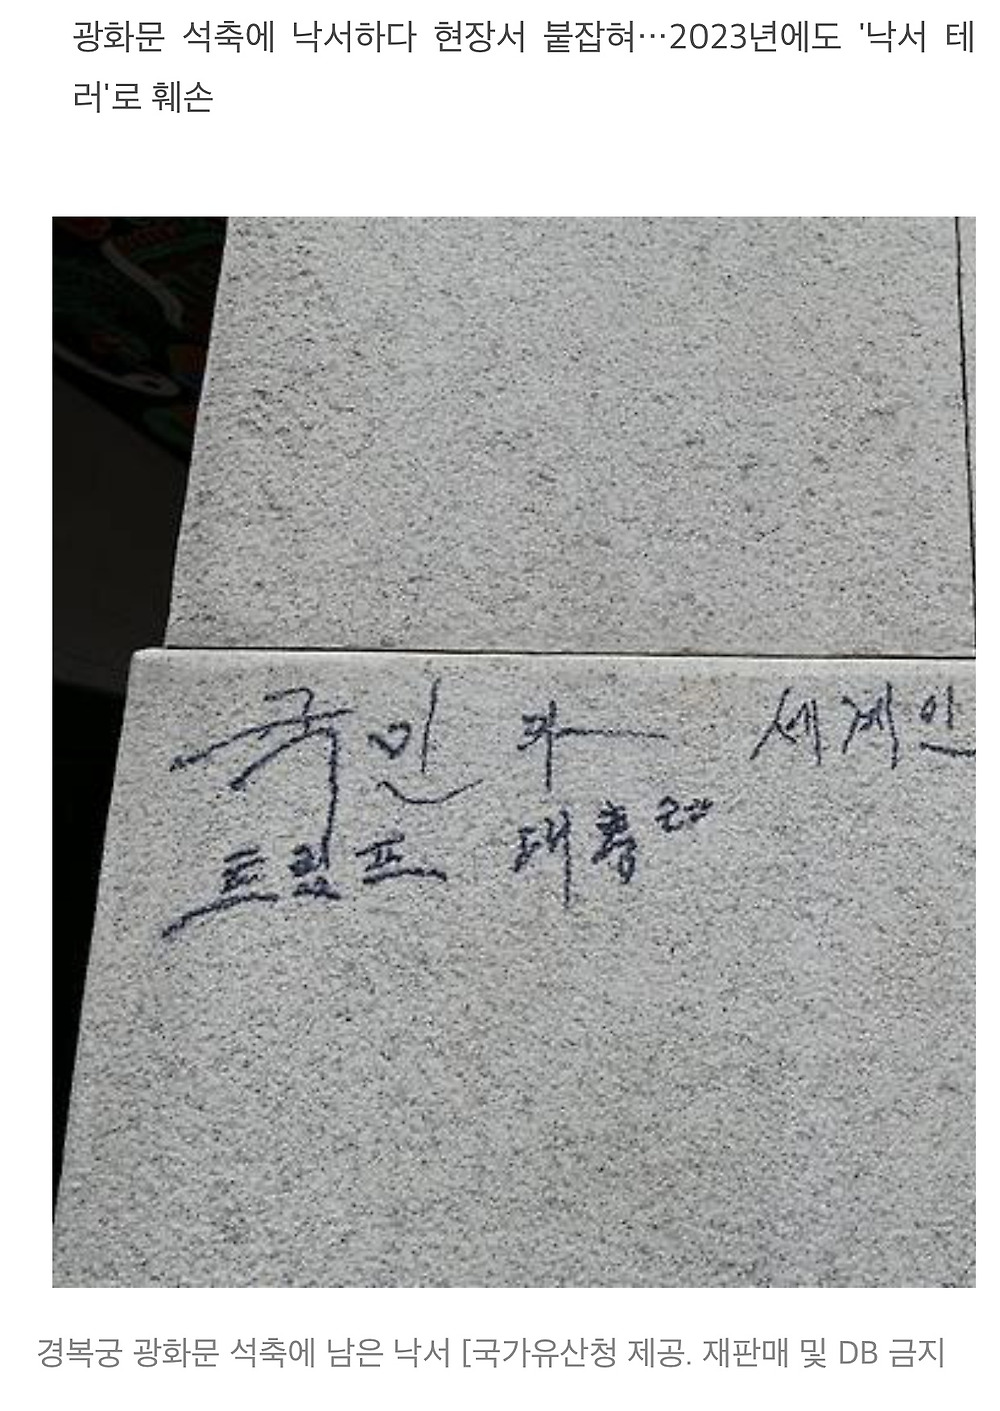 광화문 석축에 낙서하다 현장서 붙잡혀…2023년에도 '낙서 테
러'로 훼손
국민과 세계인
트럼프 대통령
경복궁 광화문 석축에 남은 낙서 [국가유산청 제공. 재판매 및 DB 금지